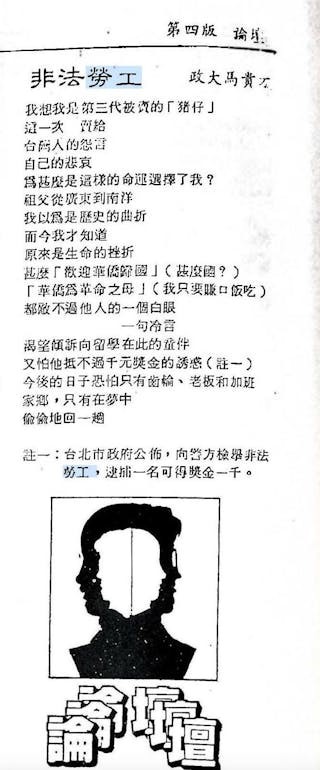 第四版 論壇
非法勞工 政大馬貴
我想我是第三代被賣的「豬仔」
這一次 賣給
台灣人的怨言
自己的悲哀
為甚麼是這樣的命運選擇了我?
祖父從廣東到南洋
我以為是歷史的曲折
而今我才知道
原來是生命的挫折
甚麼「歡迎華僑歸國」(甚麼國?)
「華僑為革命之母」(我只要賺口飯吃)
都敵不過他人的一個白眼
一句冷言
渴望傾訴向留學在此的童伴
又怕他抵不過千元獎金的誘惑(註一)
今後的日子恐怕只有齒輪、老板和加班
家鄉,只有在夢中
偷偷地回一趟
註一:台北市政府公佈,向警方檢舉非法
勞工,逮捕一名可得獎金一千。
論論壇壇